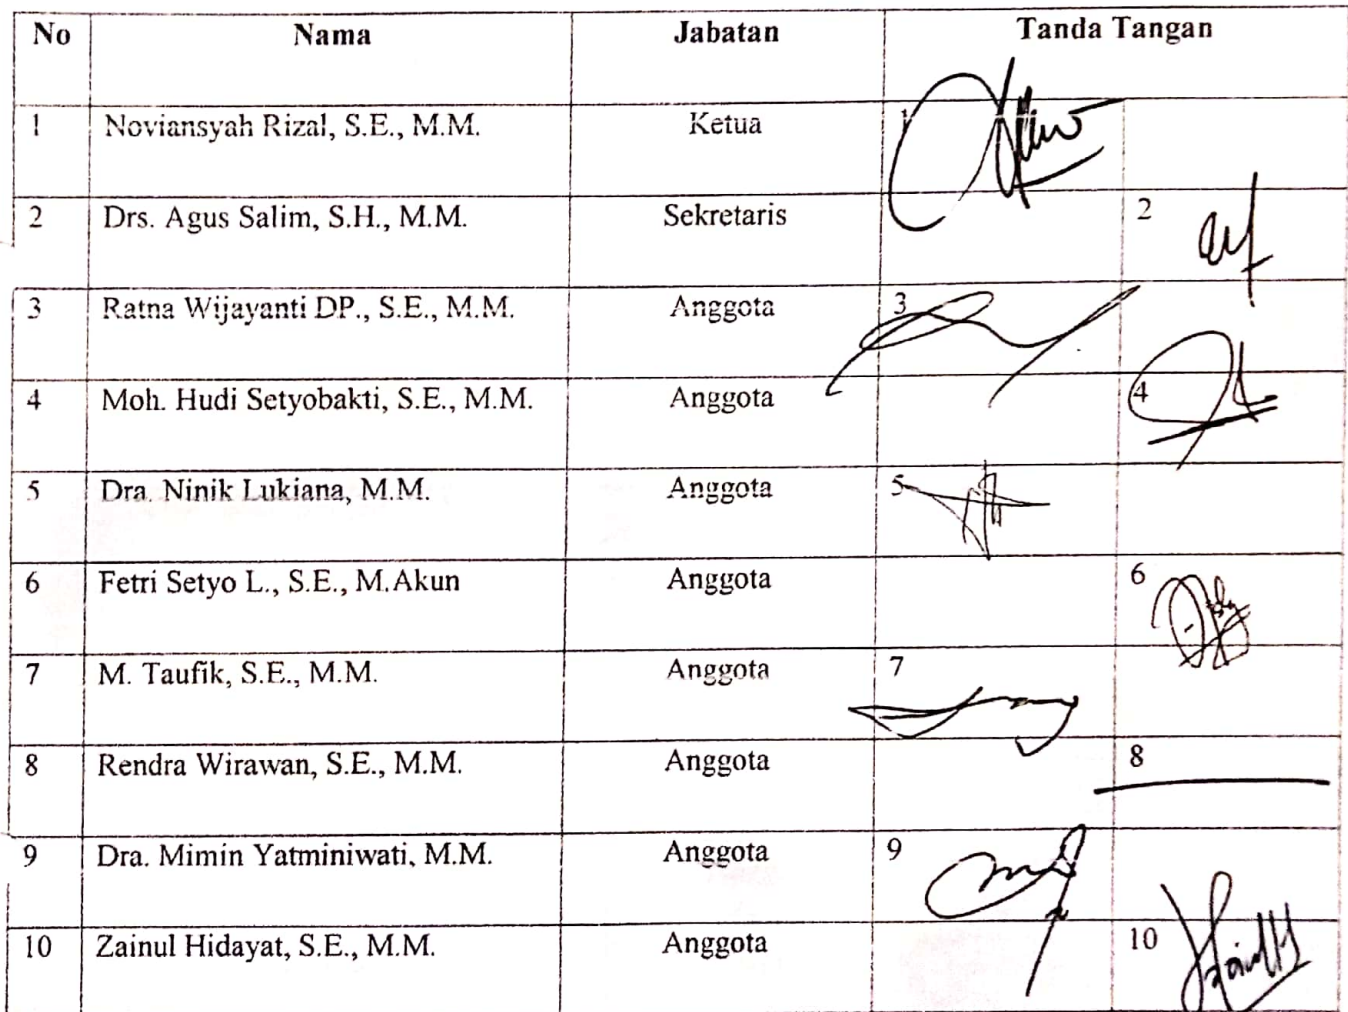 No Nama Jabatan Tanda Tangan
1 Noviansyah Rizal, S.E., M.M. Ketua 1
2 Drs. Agus Salim, S.H., M.M. Sekretaris 2
3 Ratna Wijayanti DP., S.E., M.M. Anggota 3
4 Moh. Hudi Setyobakti, S.E., M.M. Anggota 4
5 Dra. Ninik Lukiana, M.M. Anggota 5
6 Fetri Setyo L., S.E., M.Akun Anggota 6
7 M. Taufik, S.E., M.M. Anggota 7
8 Rendra Wirawan, S.E., M.M. Anggota 8
9 Dra. Mimin Yatminiwati, M.M. Anggota 9
10 Zainul Hidayat, S.E., M.M. Anggota 10